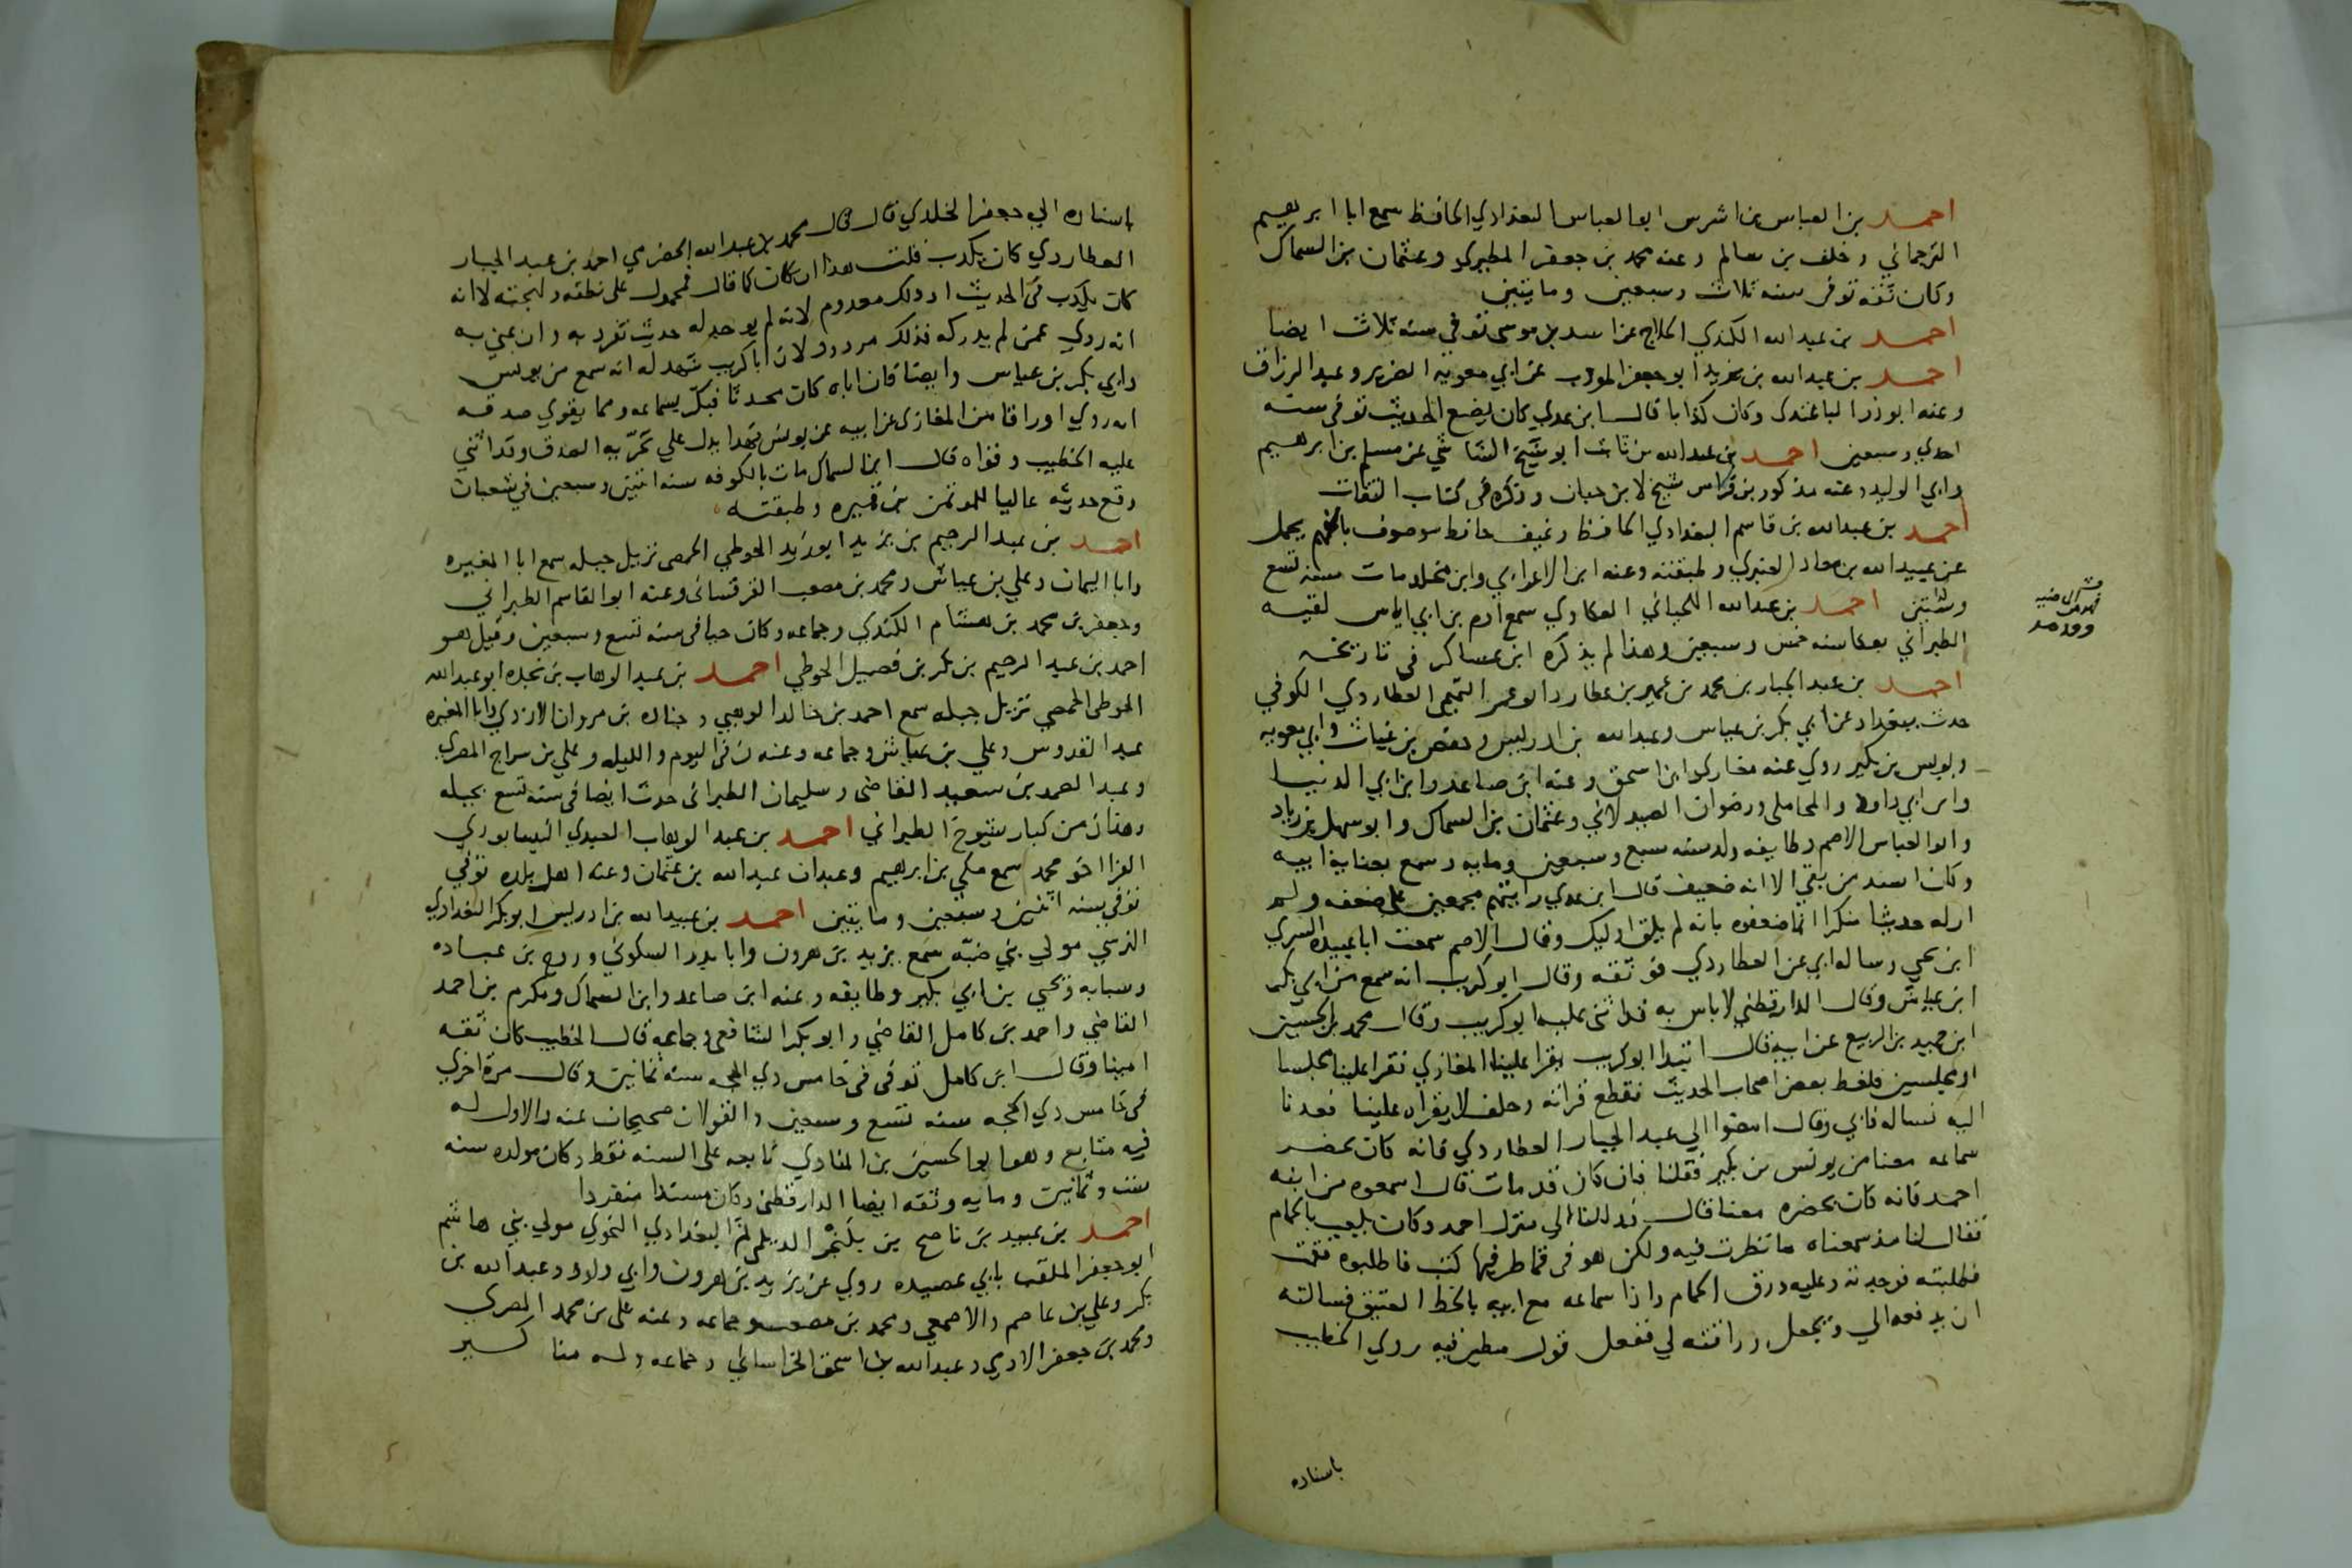 احمد بن العباس بن اشرس ابو العباس البغدادي الحافظ سمع ابا ابرهيم
الترجماني وخلف بن سالم وعنه محمد بن جعفر المطيري وعثمان بن السماك
وكان ثقه توفى سنه ثلاث وسبعين ومايتين
احمد بن عبد الله الكندي الحلاج عن اسد بن موسى توفي سنه ثلاث ايضا
احمد بن عبد الله بن يزيد ابو جعفر المودب عن ابي معويه الضرير وعبد الرزاق
وعنه ابو ذر الباغندي وكان كذابا قال ابن عدي كان يضع الحديث توفى سنه
احدي وسبعين احمد بن عبد الله بن ثابت ابو شيخ الشاشي عن مسلم بن ابرهيم
وابي الوليد وعنه مذكور بن فراس شيخ لابن حبان وذكره في كتاب الثقات
احمد بن عبد الله بن قاسم البغدادي الحافظ رغيف حافظ موصوف بالفهم يحمل
عن عبيد الله بن معاذ العنبري وطبقته وعنه ابن الاعرابي وابن مخلد مات سنه تسع
وستين احمد بن عبد الله اللحياني العكاوي سمع ادم بن ابي اياس لقيه
الطبراني بعكا سنه خمس وسبعين وهذا لم يذكره ابن عساكر في تاريخه
احمد بن عبد الجبار بن محمد بن عمير بن عطارد ابو عمر التميمي العطاردي الكوفي
حدث ببغداد عن ابي بكر بن عياش وعبد الله بن ادريس وحفص بن غياث وابي معويه
ويونس بن بكير روي عنه مغازي ابن اسحق وعنه ابن صاعد وابن ابي الدنيا
وابن ابي داود والمحاملي ورضوان الصيدلاني وعثمان بن السماك وابو سهل بن زياد
وابو العباس الاصم وطايفه ولد سنه سبع وسبعين ومايه وسمع بعناية ابيه
وكان اسند من بقي الا انه ضعيف قال ابن عدي رايتهم مجمعين على ضعفه ولم
ار له حديثا منكرا انما ضعفوه بانه لم يلق اوليك وقال الاصم سمعت ابا عبيده السري
ابن يحيي وساله ابي عن العطاردي فوثقه وقال ابو كريب انه سمع من ابي بكر
ابن عياش وقال الدارقطني لا باس به قد اثنى عليه ابو كريب وقال محمد بن الحسين
ابن حميد بن الربيع عن ابيه قال ابتدا ابو كريب يقرا علينا المغازي فقرا علينا مجلسا
او مجلسين فلغط بعض اصحاب الحديث فقطع قرااته وحلف لا يقراه علينا فعدنا
اليه نساله فابي وقال امضوا الي عبد الجبار العطاردي فانه كان يحضر
سماعه معنا من يونس بن بكير فقلنا فان كان قد مات قال اسمعوه من ابنه
احمد فانه كان يحضره معنا قال فدللنا الي منزل احمد وكان يلعب بالحمام
فقال لنا مذ سمعناه ما نظرت فيه ولكن هو في قماطر فيها كتب فاطلبوه فقمت
فطلبته فوجدته وعليه ذرق الحمام واذا سماعه مع ابيه بالخط العتيق فسالته
ان يدفعه الي ويجعل وراقته لي ففعل قول مطين فيه روي الخطيب
باسناده
باسناده الي جعفر الخلدي قال قال محمد بن عبد الله الحضرمي احمد بن عبد الجبار
العطاردي كان يكذب قلت هذا ان كان كما قال فمحمول على نطقه ولهجته لا انه
كان يكذب في الحديث اذ ذلك معدوم لانه لم يوجد له حديث تفرد به وان عني به
انه روي عمن لم يدركه فذلك مردود لان ابا كريب شهد له انه سمع من يونس
وابي بكر بن عياش وايضا فان اباه كان محدثا فبكّر بسماعه ومما يقوي صدقه
انه روي اوراقا من المغازى عن ابيه عن يونس فهذا يدل علي تحرّيه الصدق وقد اثني
عليه الخطيب وقواه قال ابن السماك مات بالكوفه سنه اثنتين وسبعين في شعبان
وقع حديثه عاليا للموتمن بن قميره وطبقته
احمد بن عبد الرحيم بن يزيد ابو زيد الحوطي الحمصي نزيل جبله سمع ابا المغيره
وابا اليمان وعلي بن عياش ومحمد بن مصعب القرقسانى وعنه ابو القاسم الطبراني
وجعفر بن محمد بن هشام الكندي وجماعه وكان حيا في سنه تسع وسبعين وقيل هو
احمد بن عبد الرحيم بن بكر بن فصيل الحوطي احمد بن عبد الوهاب بن نجده ابو عبد الله
الحوطي الحمصي نزيل جبله سمع احمد بن خالد الوهبي وجناده بن مروان الازدي وابا المغيره
عبد القدوس وعلي بن عياش وجماعه وعنه ن في اليوم والليله وعلي بن سراج المصري
وعبد الصمد بن سعيد القاضي وسليمان الطبرانى حدث ايضا فى سنه تسع بجبله
وهذان من كبار شيوخ الطبراني احمد بن عبد الوهاب العبدي النيسابوري
الفرا اخو محمد سمع مكي بن ابرهيم وعبدان عبد الله بن عثمان وعنه اهل بلده توفي
توفي سنه اثنتين وسبعين ومايتين احمد بن عبيد الله بن ادريس ابو بكر البغدادي
النرسي مولي بني ضبّه سمع يزيد بن هرون وابا بدر السكوني وروح بن عباده
وشبابه ويحيي بن ابي بكير وطايفه وعنه ابن صاعد وابن السماك ومكرم بن احمد
القاضي واحمد بن كامل القاضي وابو بكر الشافعى وجماعه قال الخطيب كان ثقه
امينا وقال ابن كامل توفى فى خامس ذي الحجه سنه ثمانين وقال مرة اخري
في خامس ذي الحجه سنه تسع وسبعين والقولان صحيحان عنه والاول له
فيه متابع وهو ابو الحسين بن المنادي تابعه على السنه فقط وكان مولده سنه
ست وثمانين ومايه وثقه ايضا الدارقطنى وكان مسندا منفردا
احمد بن عبيد بن ناصح بن بلنجر الديلمي ثم البغدادي النحوي مولي بني هاشم
ابو جعفر الملقب بابي عصيده روي عن يزيد بن هرون وابي داود وعبد الله بن
بكر وعلي بن عاصم والاصمعي ومحمد بن مصعب وجماعه وعنه على بن محمد المصري
ومحمد بن جعفر الادمي وعبد الله بن اسحق الخراساني وجماعه وله مناكير